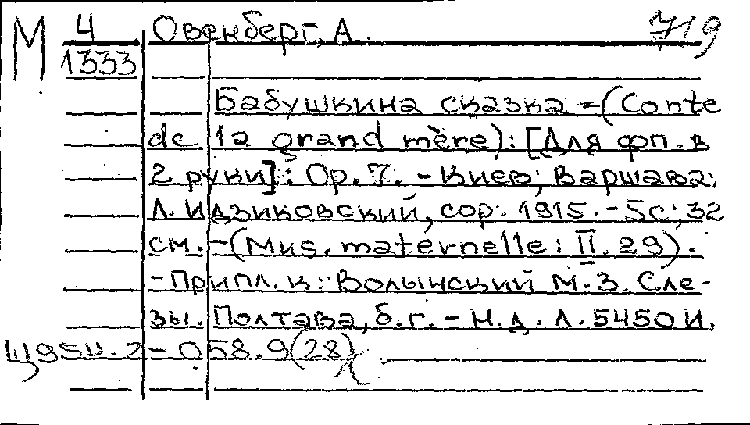 М 4 Овенберг, А. 719
1333
Бабушкина сказка =(Conte
de la grand mère): [Для фп. в
2 руки]: Op. 7. - Киев; Варшава:
Л. Идзиковский, cop. 1915. - 5с; 32
см. - (Mus. maternelle: II. 29).
- Припл. к: Волынский М. З. Сле-
зы. Полтава, б.г. - Н.д. Л. 5450 И.
058.9(28)